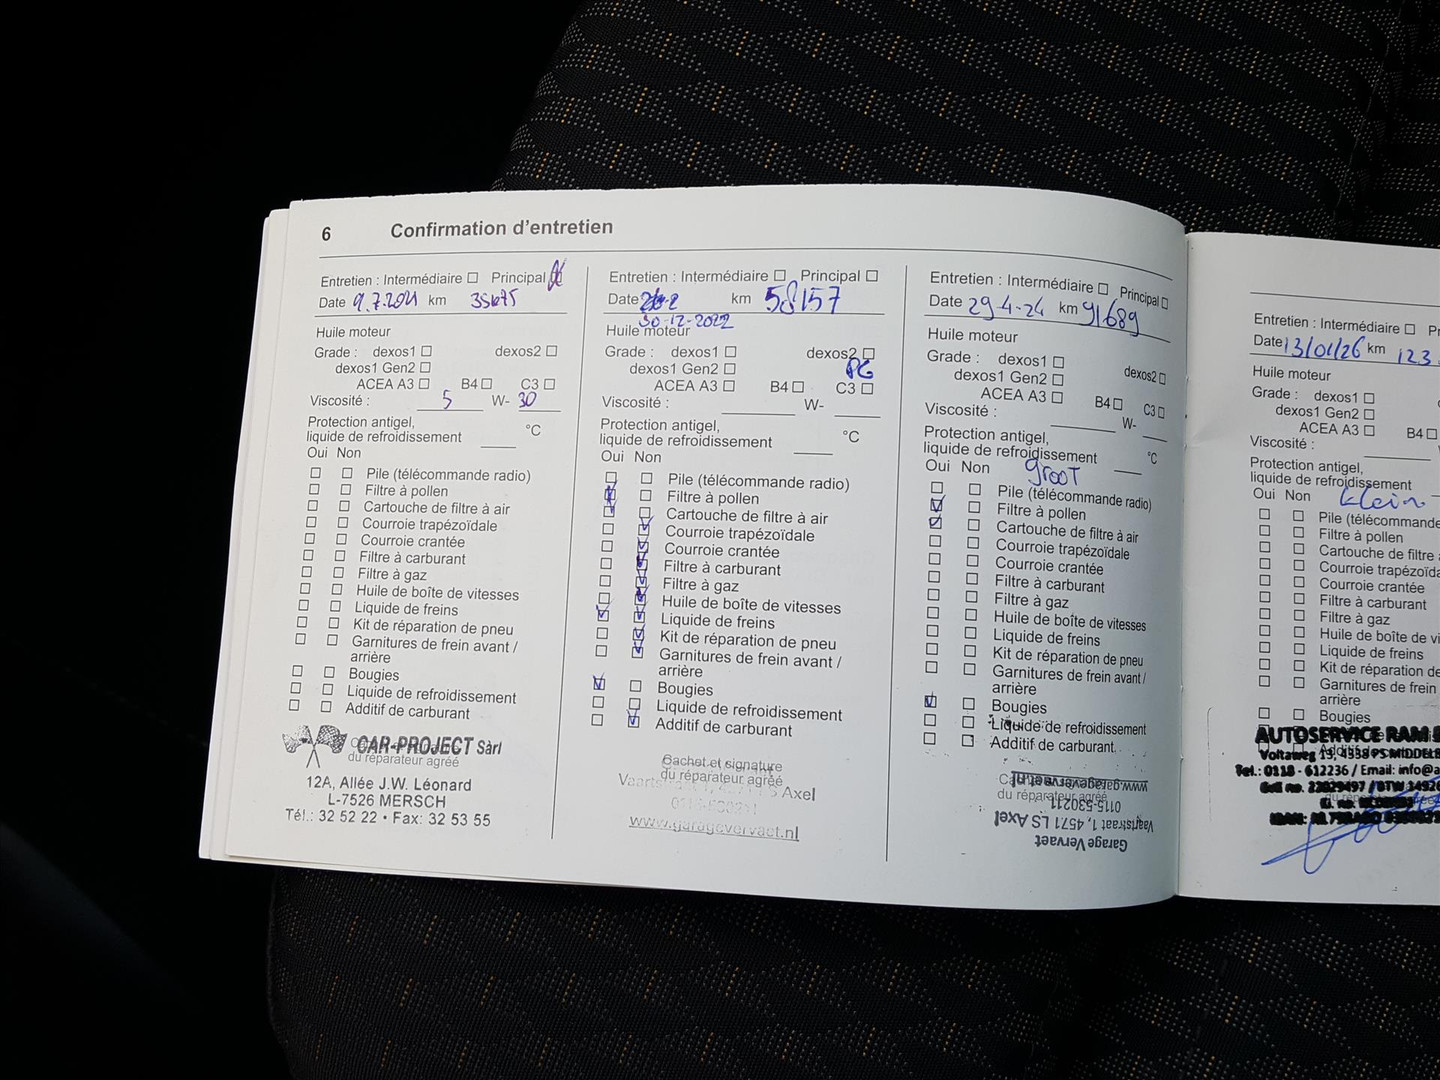 6 Confirmation d'entretien
Entretien : Intermédiaire ☐ Principal
Date 9.7.2021 km 35675
Huile moteur
Grade : dexos1 ☐ dexos2 ☐
dexos1 Gen2 ☐
ACEA A3 ☐ B4 ☐ C3 ☐
Viscosité : 5 W- 30
Protection antigel,
liquide de refroidissement ____ °C
Oui Non
☐ ☐ Pile (télécommande radio)
☐ ☐ Filtre à pollen
☐ ☐ Cartouche de filtre à air
☐ ☐ Courroie trapézoïdale
☐ ☐ Courroie crantée
☐ ☐ Filtre à carburant
☐ ☐ Filtre à gaz
☐ ☐ Huile de boîte de vitesses
☐ ☐ Liquide de freins
☐ ☐ Kit de réparation de pneu
☐ ☐ Garnitures de frein avant /
arrière
☐ ☐ Bougies
☐ ☐ Liquide de refroidissement
☐ ☐ Additif de carburant
CAR-PROJECT Sàrl
du réparateur agréé
12A, Allée J.W. Léonard
L-7526 MERSCH
Tél.: 32 52 22 • Fax: 32 53 55
Entretien : Intermédiaire ☐ Principal ☐
Date km 58157
30-12-2022
Huile moteur
Grade : dexos1 ☐ dexos2 ☐
dexos1 Gen2 ☐
ACEA A3 ☐ B4 ☐ C3 ☐
Viscosité : ____ W- ____
Protection antigel,
liquide de refroidissement ____ °C
Oui Non
Pile (télécommande radio)
Filtre à pollen
Cartouche de filtre à air
Courroie trapézoïdale
Courroie crantée
Filtre à carburant
Filtre à gaz
Huile de boîte de vitesses
Liquide de freins
Kit de réparation de pneu
Garnitures de frein avant /
arrière
Bougies
Liquide de refroidissement
Additif de carburant
Cachet et signature
du réparateur agréé
Axel
www.garagevervaet.nl
Entretien : Intermédiaire ☐ Principal ☐
Date 29-4-24 km 91689
Huile moteur
Grade : dexos1 ☐ dexos2 ☐
dexos1 Gen2 ☐
ACEA A3 ☐ B4 ☐ C3 ☐
Viscosité : ____ W- ____
Protection antigel,
liquide de refroidissement ____ °C
Oui Non groot
Pile (télécommande radio)
Filtre à pollen
Cartouche de filtre à air
Courroie trapézoïdale
Courroie crantée
Filtre à carburant
Filtre à gaz
Huile de boîte de vitesses
Liquide de freins
Kit de réparation de pneu
Garnitures de frein avant /
arrière
Bougies
Liquide de refroidissement
Additif de carburant
du réparateur agréé
Garage Vervaet
Vaartstraat 1, 4571 LS Axel
0115-530211
www.garagevervaet.nl
Entretien : Intermédiaire ☐
Date 13/01/26 km 123
Huile moteur
Grade : dexos1 ☐
dexos1 Gen2 ☐
ACEA A3 ☐ B4 ☐
Viscosité :
Protection antigel,
liquide de refroidissement
Oui Non klein
☐ ☐ Pile (télécommande
☐ ☐ Filtre à pollen
☐ ☐ Cartouche de filtre
☐ ☐ Courroie
☐ ☐ Courroie crantée
☐ ☐ Filtre à carburant
☐ ☐ Filtre à gaz
☐ ☐ Huile de boîte de
☐ ☐ Liquide de freins
☐ ☐ Kit de réparation de
☐ ☐ Garnitures de frein
arrière
☐ ☐ Bougies
AUTOSERVICE RAM
Voltaweg 13, 4338 PS
Tel.: 0118 - 612236 / Email: